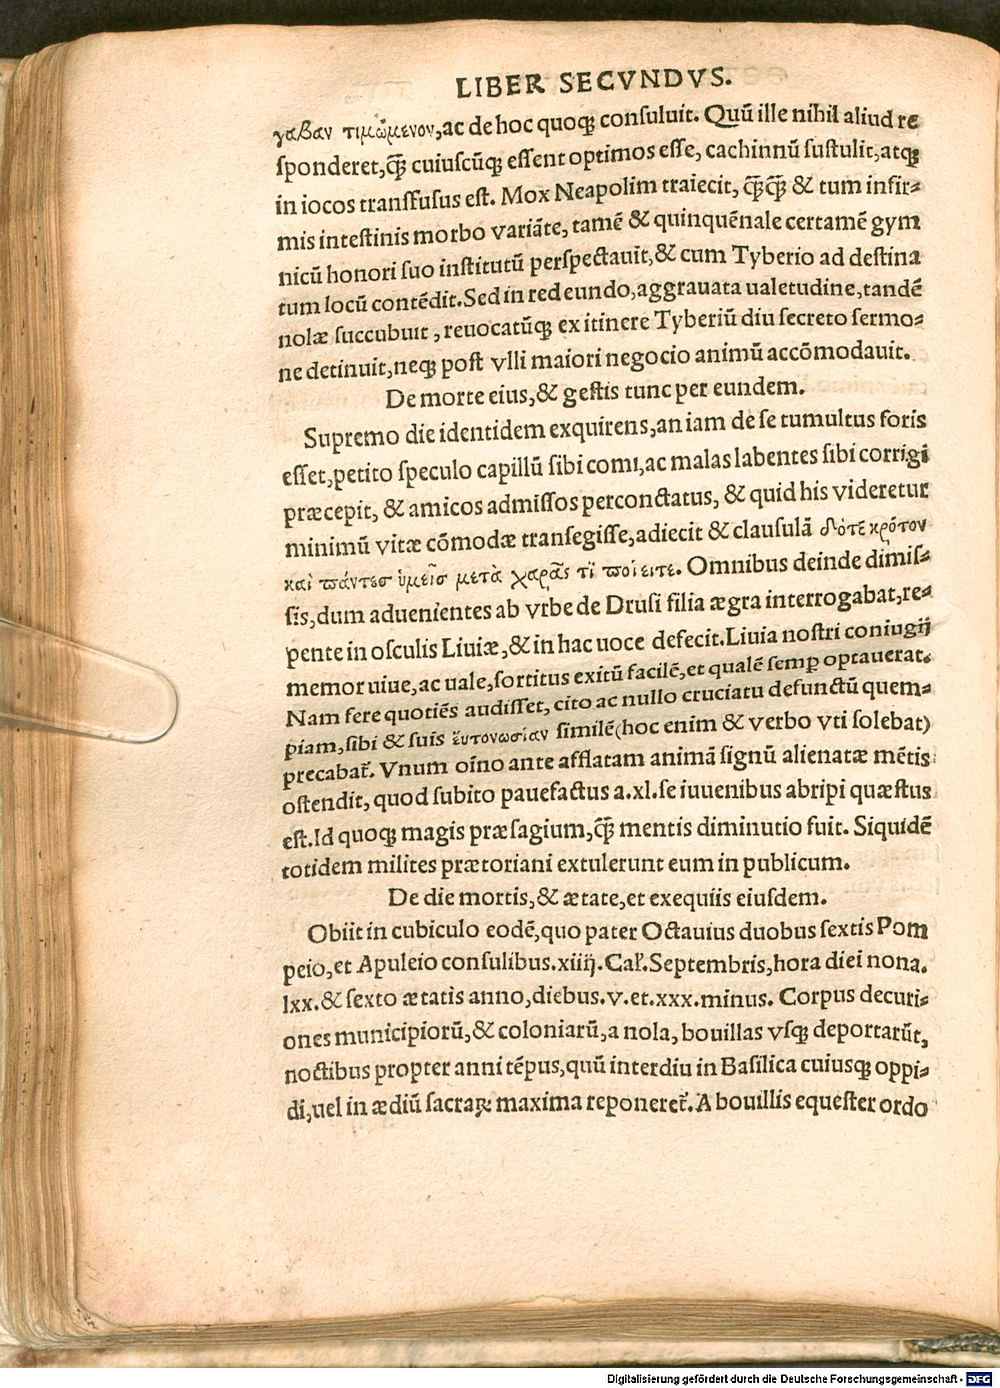 LIBER SECVNDVS.
γαβαν τιμώμενον,ac de hoc quoqꝫ consuluit. Quũ ille nihil aliud re
sponderet,q̃ꝫ cuiuscũqꝫ essent optimos esse, cachinnũ sustulit,atqꝫ
in iocos transfusus est. Mox Neapolim traiecit, q̃ꝫq̃ꝫ & tum infir⸗
mis intestinis morbo variãte, tamẽ & quinquẽnale certamẽ gym
nicũ honori suo institutũ perspectauit,& cum Tyberio ad destina
tum locũ contẽdit.Sed in redeundo,aggrauata ualetudine,tandẽ
nolæ succubuit , reuocatũqꝫ ex itinere Tyberiũ diu secreto sermo⸗
ne detinuit,neqꝫ post vlli maiori negocio animũ accõmodauit.
De morte eius,& gestis tunc per eundem.
Supremo die identidem exquirens,an iam de se tumultus foris
esset,petito speculo capillũ sibi comi,ac malas labentes sibi corrigi
præcepit, & amicos admissos perconctatus, & quid his videretur
minimũ vitæ cõmodæ transegisse,adiecit & clausulã δότέ κρότον
καὶ πάντεσ ὑμεῖσ μετὰ χαρᾶς τὶ ποίειτε. Omnibus deinde dimis⸗
sis,dum aduenientes ab vrbe de Drusi filia ægra interrogabat,re⸗
pente in osculis Liuiæ,& in hac uoce defecit.Liuia nostri coniugij
memor uiue,ac uale,sortitus exitũ facilẽ,et qualẽ semp̱ optauerat.
Nam fere quotiẽs audisset, cito ac nullo cruciatu defunctũ quem⸗
piam,sibi & suis ἔυτονωσίαν similẽ(hoc enim & verbo vti solebat)
precabat᷑. Vnum oĩno ante afflatam animã signũ alienatæ mẽtis
ostendit, quod subito pauefactus a.xl.se iuuenibus abripi quæstus
est.Id quoqꝫ magis præsagium,q̃ꝫ mentis diminutio fuit. Siquidẽ
totidem milites prætoriani extulerunt eum in publicum.
De die mortis,& ætate,et exequiis eiusdem.
Obiit in cubiculo eodẽ,quo pater Octauius duobus sextis Pom
peio,et Apuleio consulibus.xiiij.Cal'.Septembris,hora diei nona.
lxx.& sexto ætatis anno,diebus.v.et.xxx.minus. Corpus decuri⸗
ones municipiorũ,& coloniarũ,a nola, bouillas vsqꝫ deportarũt,
noctibus propter anni tẽpus,quũ interdiu in Basilica cuiusqꝫ oppi⸗
di,uel in ædiũ sacraꝝ maxima reponeret᷑.A bouillis equester ordo
Digitalisierung gefördert durch die Deutsche Forschungsgemeinschaft - DFG